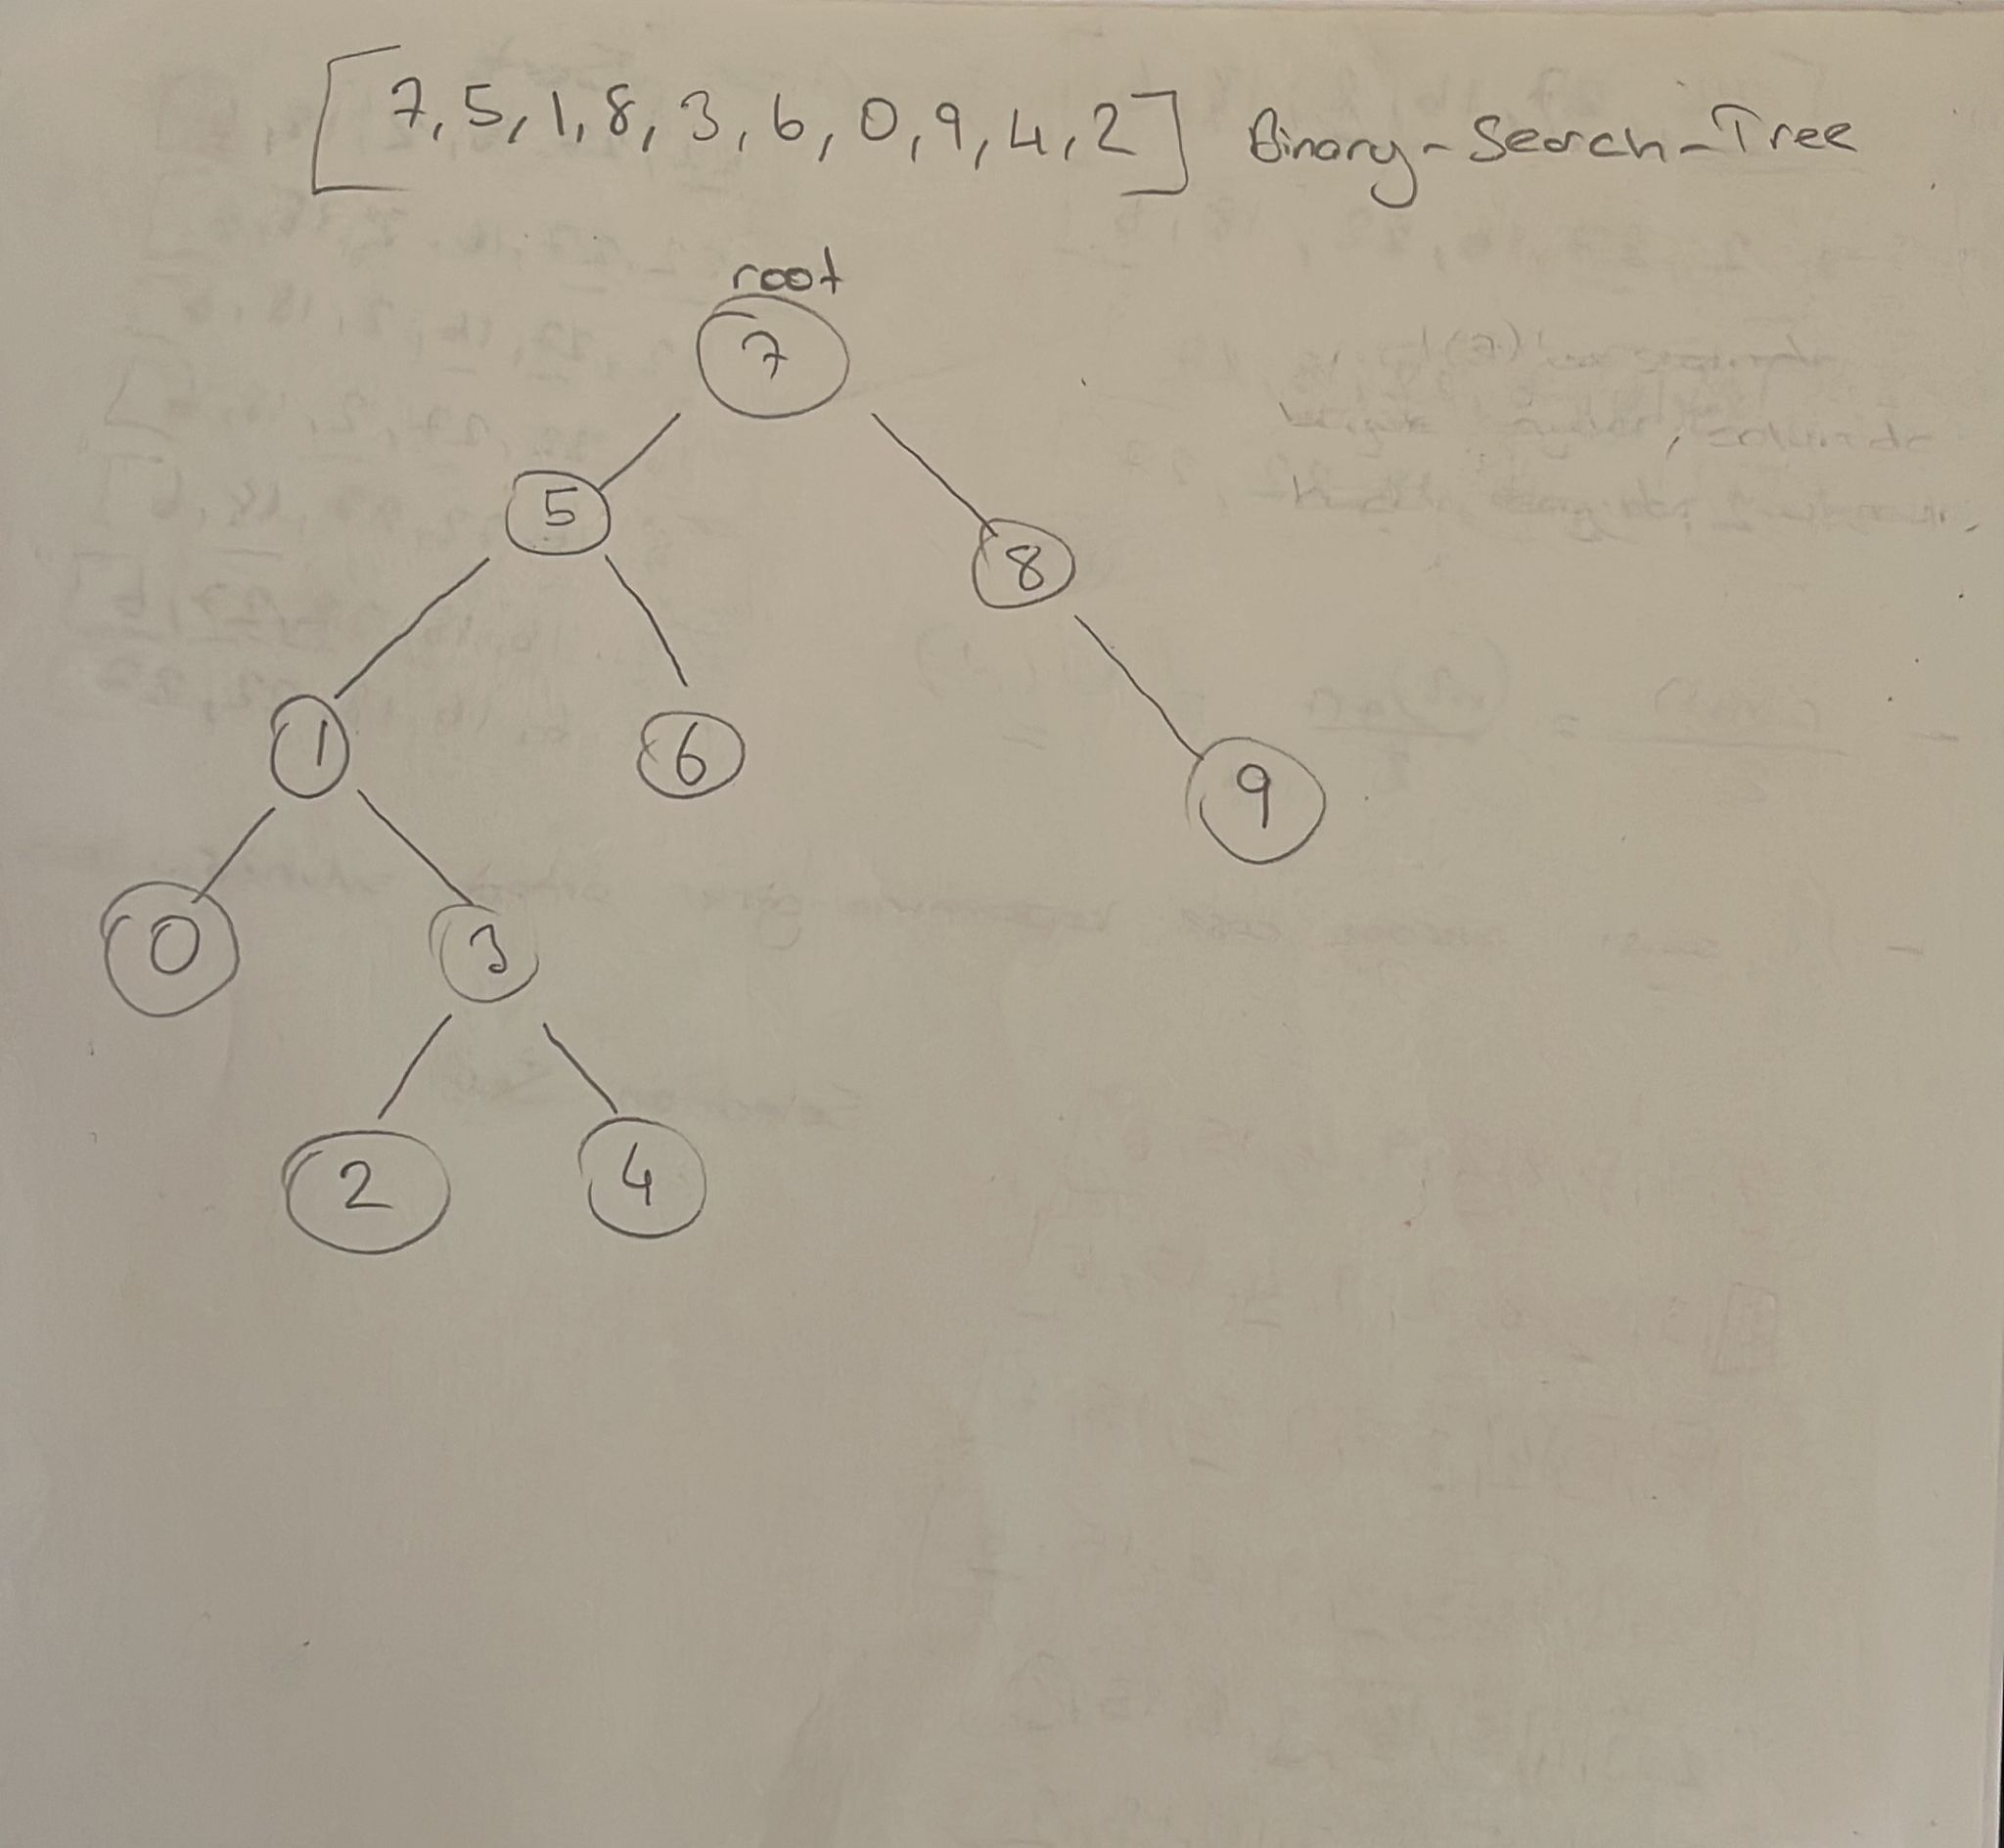 [7, 5, 1, 8, 3, 6, 0, 9, 4, 2] Binary-Search-Tree
root
7
5
8
1
6
9
0
3
2
4